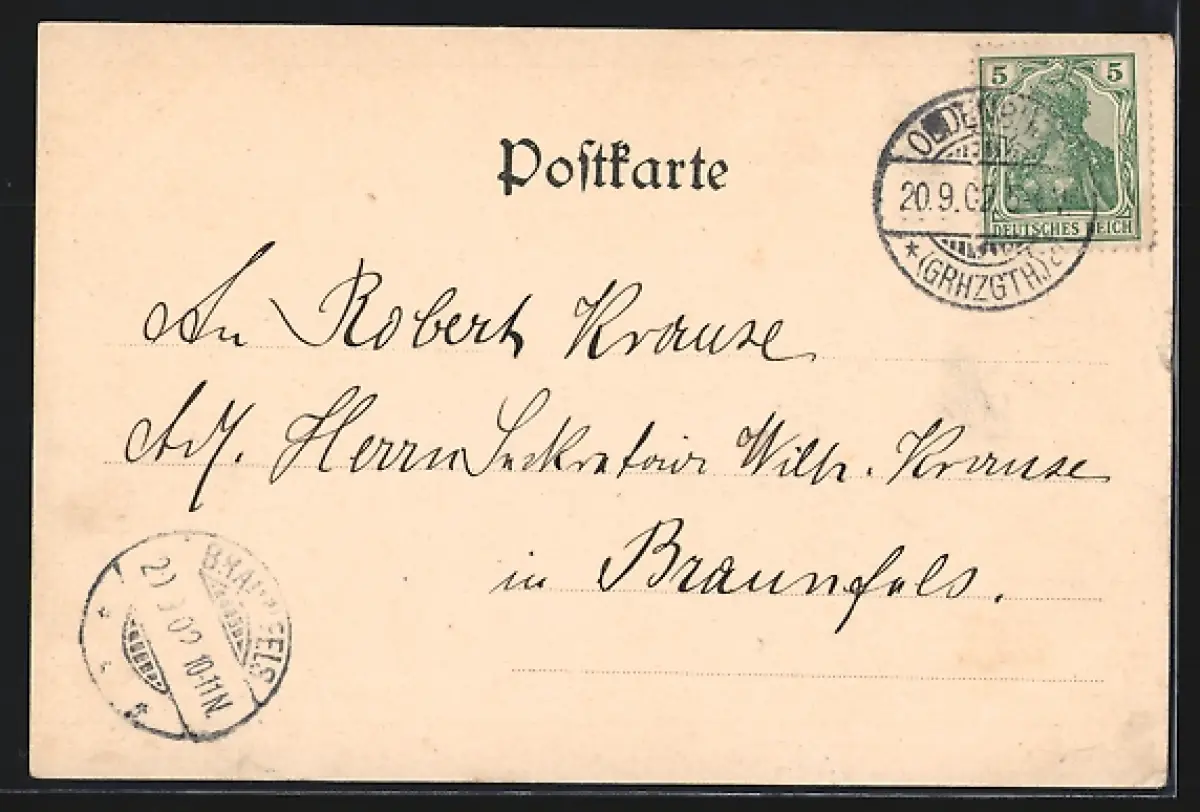 5 5
DEUTSCHES REICH
OLDENB
20.9.02. 5-
* (GRHZGTH.)
Postkarte
An Robert Krause
Herrn Sekretair Wilh. Krause
in Braunfels.
BRAUNFELS
02 10-11N.